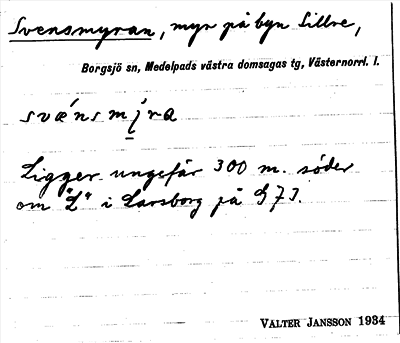 Svensmyran, myr på byn Sillre,
Borgsjö sn, Medelpads västra domsagas tg, Västernorrl. l.
svǽnsmy̱ra
Ligger ungefär 300 m. söder
om "L" i Larsborg på G73.
VALTER JANSSON 1934